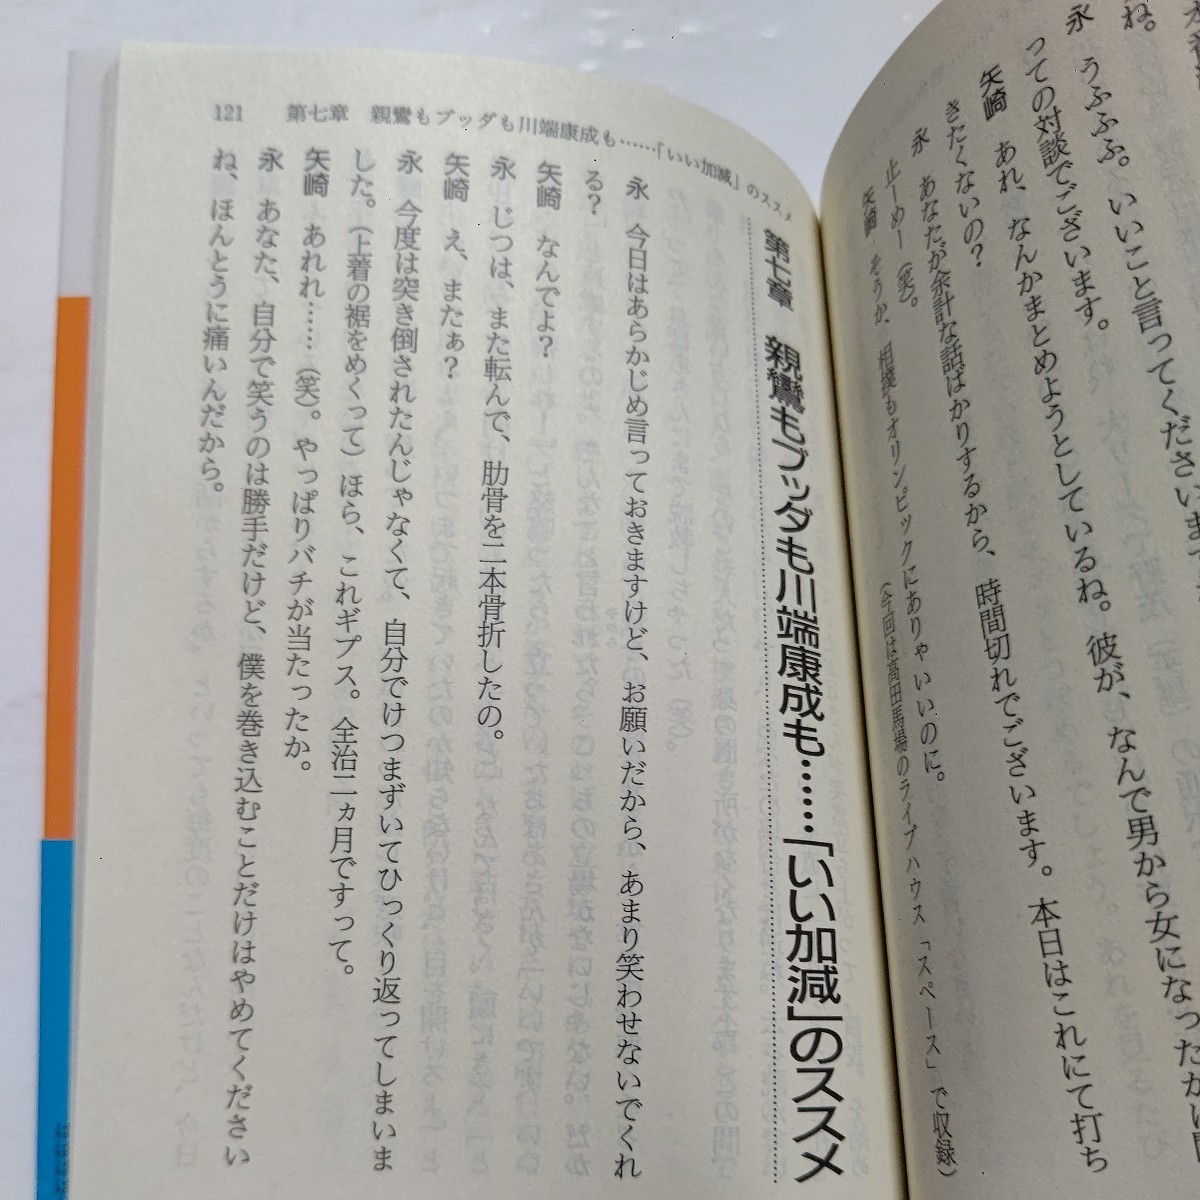 うふふふ。いいこと言ってくださいます
っての対談でございます。
矢崎　あれ、なんかまとめようとしているね。彼が、なんで男から女になったかは
きたくないの？
永　あなたが余計な話ばかりするから、時間切れでございます。本日はこれにて打ち
止ーめー（笑）。
矢崎　そうか、相撲もオリンピックにありゃいいのに。
（今回は高田馬場のライブハウス「スペース」で収録）
121　第七章　親鸞もブッダも川端康成も……「いい加減」のススメ
第七章　親鸞もブッダも川端康成も……「いい加減」のススメ
永　今日はあらかじめ言っておきますけど、お願いだから、あまり笑わせないでくれ
る？
矢崎　なんでよ？
永　じつは、また転んで、肋骨を二本骨折したの。
矢崎　え、またぁ？
永　今度は突き倒されたんじゃなくて、自分でけつまずいてひっくり返ってしまいま
した。（上着の裾をめくって）ほら、これギプス。全治二ヵ月ですって。
矢崎　あれれ……（笑）。やっぱりバチが当たったか。
永　あなた、自分で笑うのは勝手だけど、僕を巻き込むことだけはやめてください
ね、ほんとうに痛いんだから。